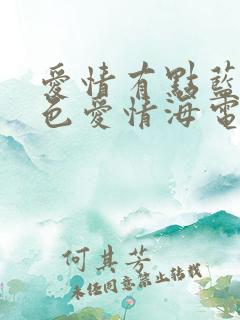 愛情有點藍
色愛情海電
何其芳
未經同意禁止轉載